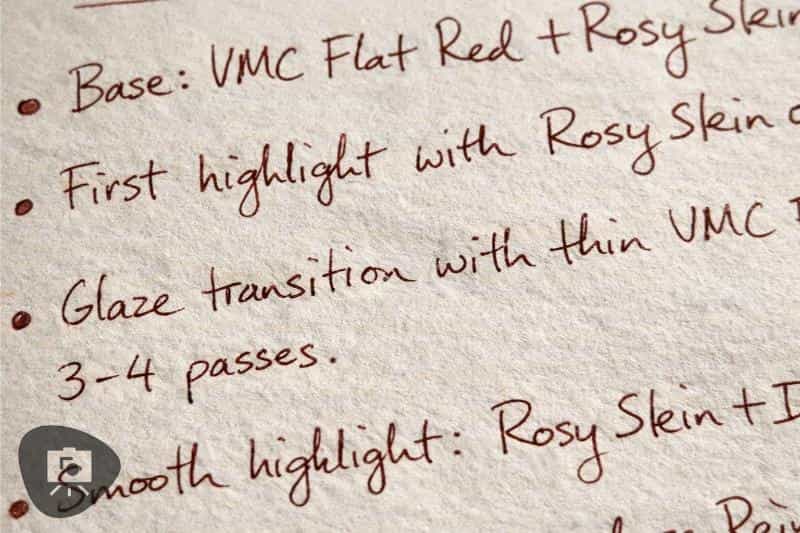 • Base: VMC Flat Red + Rosy Skin
• First highlight with Rosy Skin
• Glaze transition with thin VMC
3-4 passes.
• Smooth highlight: Rosy Skin +